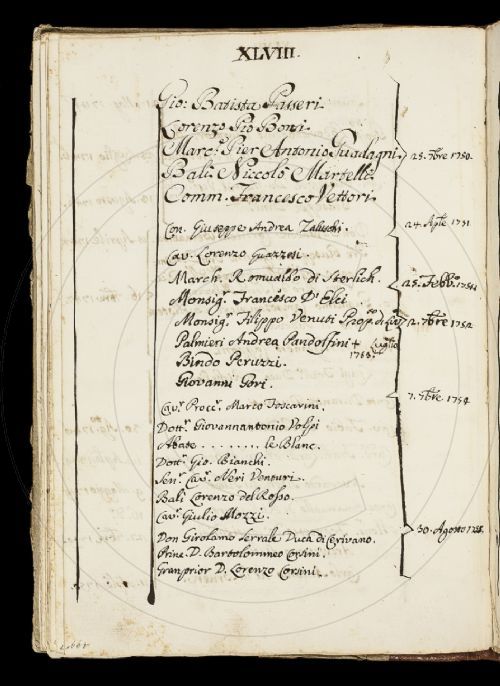 XLVIII.
Gio: Batista Passeri
Lorenzo Pio Bonsi
Marc.e Pier Antonio Guadagni 25. 9bre 1750.
Balì Niccolò Martelli
Comm: Francesco Vettori
Con. Giuseppe Andrea Zaluschi. 24. Aple 1751
Cav. Lorenzo Guazzesi.
March. Romualdo di Sterlich. 25. Febbo. 1751
Monsig.r Francesco D'Elci
Monsig.r Filippo Venuti Propo. di 2. 1752
Palmieri Andrea Pandolfini + Luglio
Bindo Peruzzi.
Giovanni Gori.
7. 1754
Cav.r Procc.r Marco Foscarini.
Dott.r Giovannantonio Volpi
Abate ........ le Blanc.
Dott.r Gio. Bianchi.
Sen.r Cav.r Neri Venturi.
Balì Lorenzo del Rosso.
Cav.r Giulio Mozzi.
Don Girolamo Serrale Duca di Cerivano. 30. Agosto
Prine. D. Bartolommeo Corsini.
Granprior D. Lorenzo Corsini.